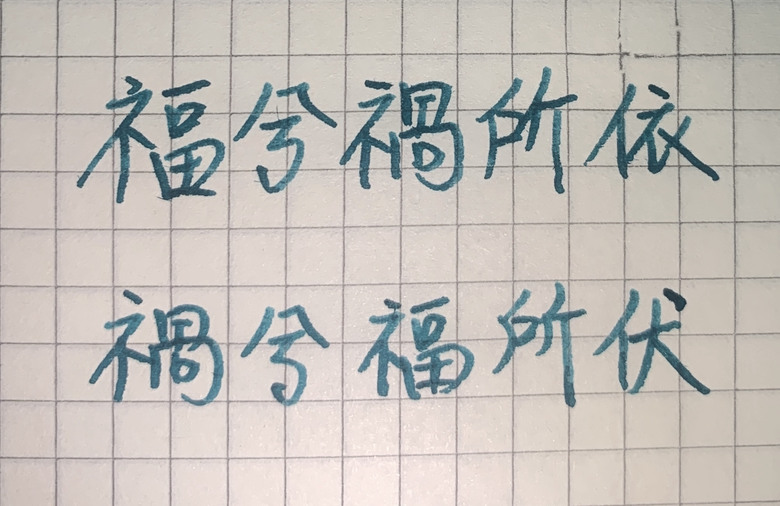 福兮禍所依
禍兮福所伏